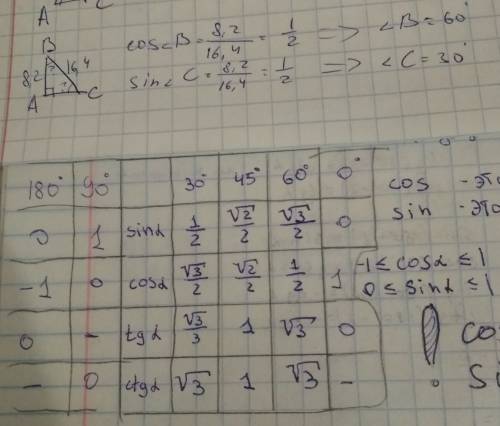 A
B
8,2 ? 16,4
A ? C
cos∠B = 8,2/16,4 = 1/2 => ∠B = 60°
sin∠C = 8,2/16,4 = 1/2 => ∠C = 30°
180° 90° 30° 45° 60° 0°
0 1 sinα 1/2 √2/2 √3/2 0
-1 0 cosα √3/2 √2/2 1/2 1
0 - tgα √3/3 1 √3 0
- 0 ctgα √3 1 √3 -
cos - это
sin - это
-1 ≤ cosα ≤ 1
0 ≤ sinα ≤ 1
! co
si